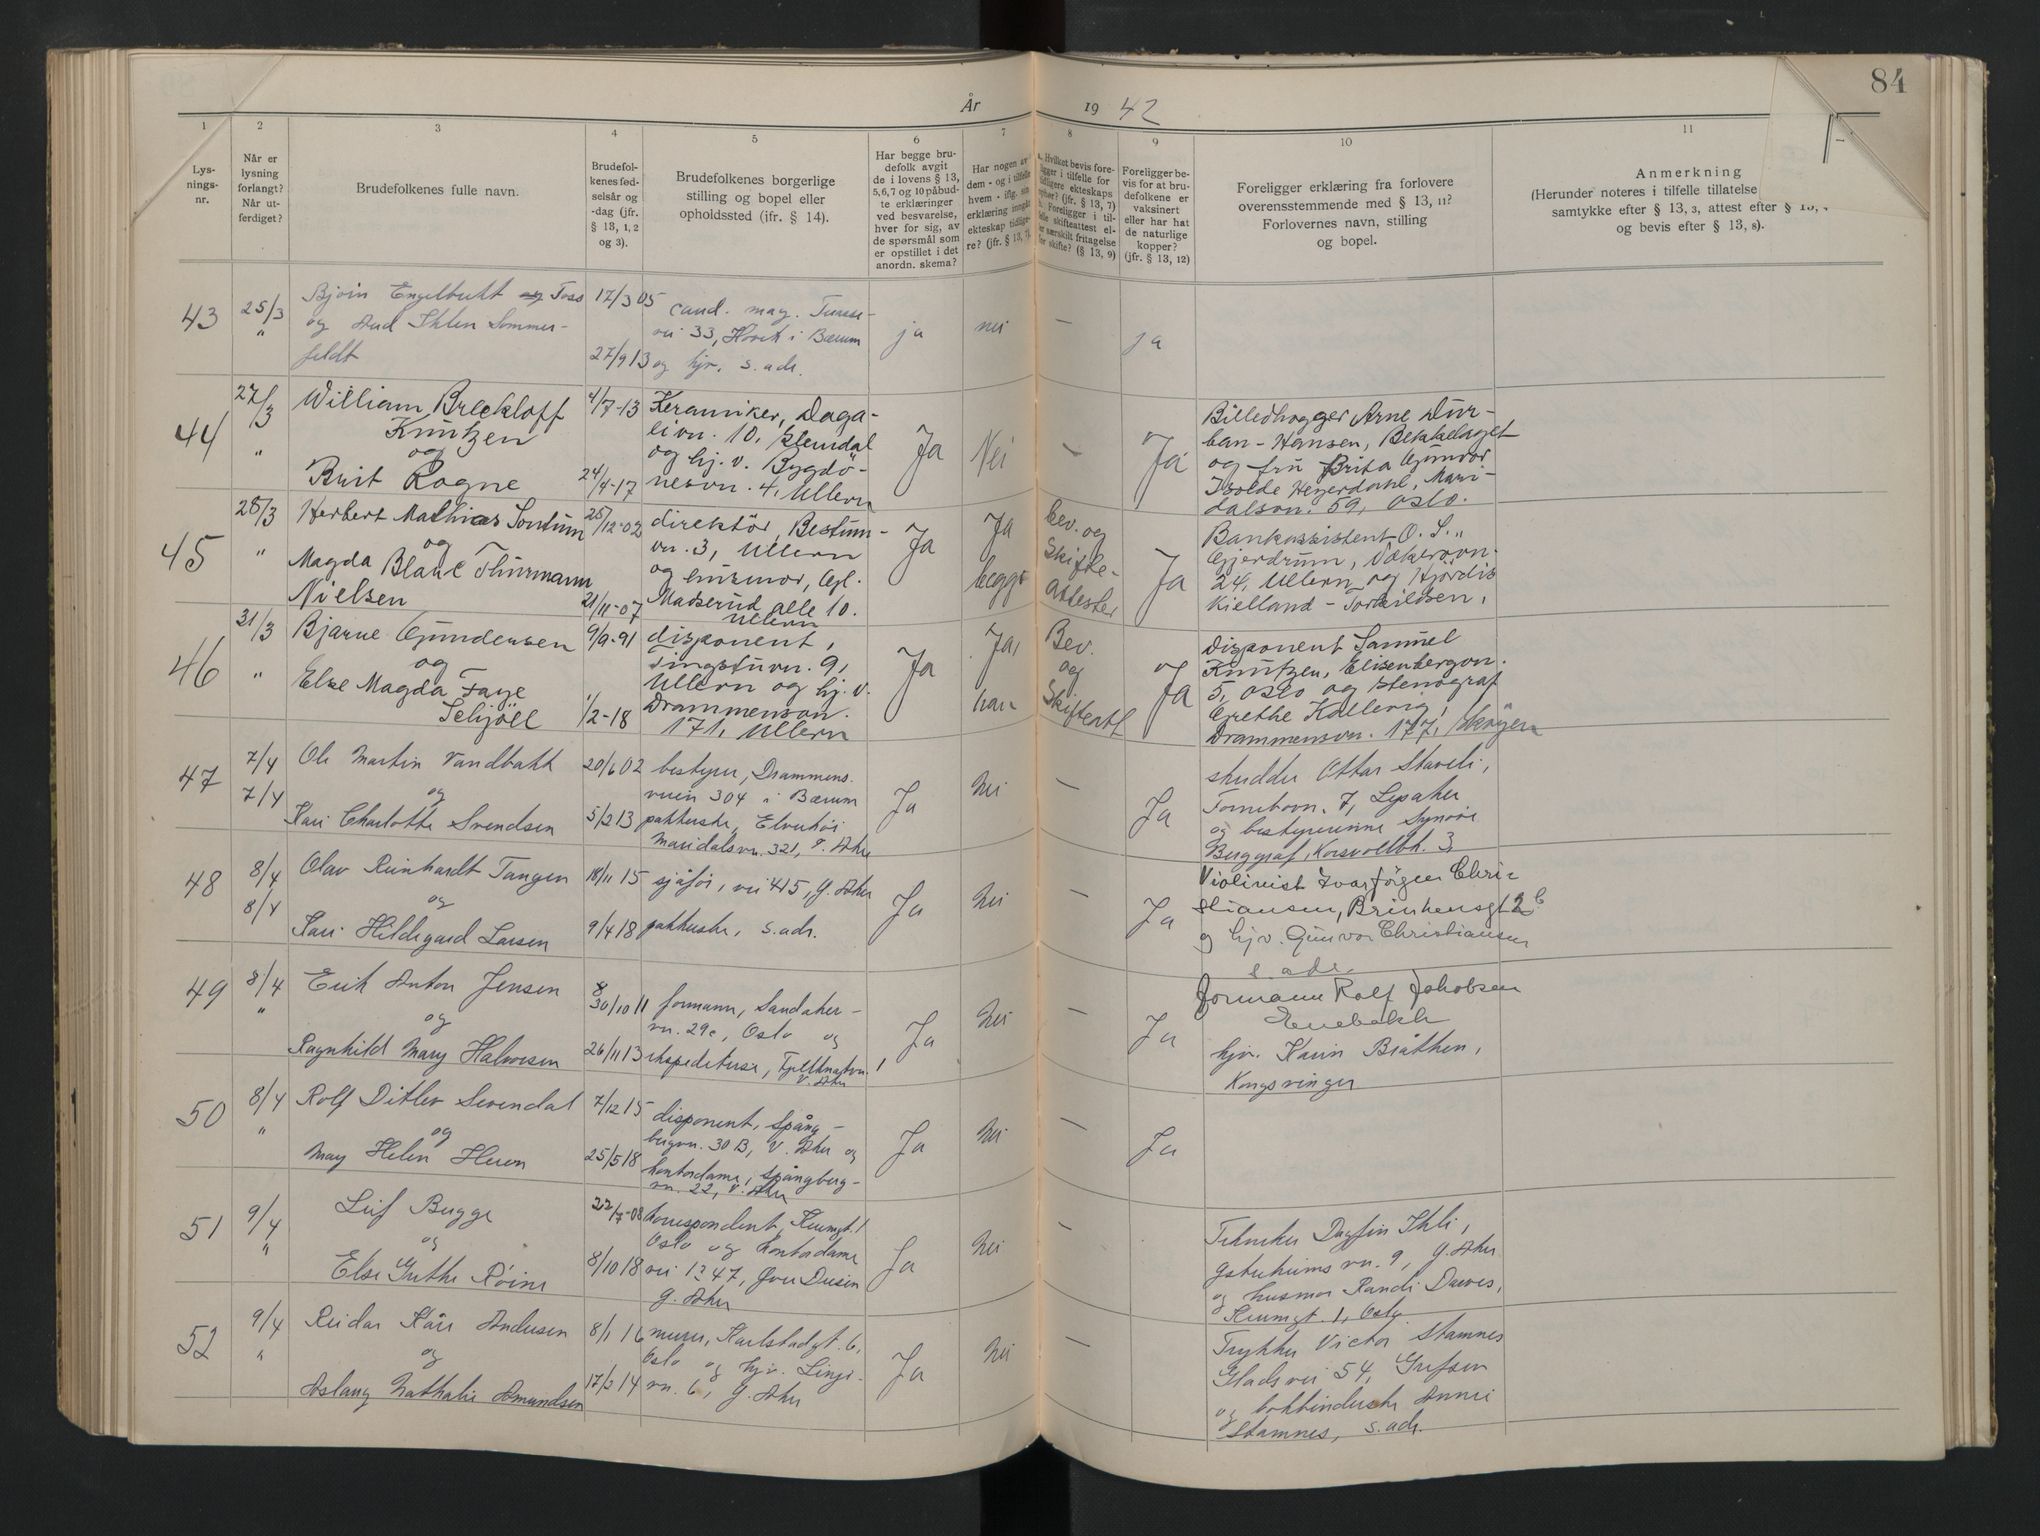 84
År 1942
1
2
3
4
5
6
7
8
9
10
11
Lys-
nings-
nr.
Når er
lysning
forlangt?
Når ut-
ferdiget?
Brudefolkenes fulle navn.
Brudefol-
kenes fød-
selsår og
-dag (jfr.
§ 13, 1, 2
og 3).
Brudefolkenes borgerlige
stilling og bopel eller
opholdssted (ifr. § 14).
Har begge bru-
defolk avgit
de i lovens § 13,
5, 6, 7 og 10 påbud-
te erklæringer
ved besvarelse,
hver for sig, av
de spørsmål som
er opstillet i det
anordn. skema?
Har nogen av
dem - og i tilfelle
hvem - iflg. sin
erklæring inngått
ekteskap tidlige-
re? (jfr. § 13, 7)
a. Hvilket bevis fore-
ligger i tilfelle for
tidligere ekteskaps
ophør? (jfr. § 13, 7)
b. Foreligger i til-
felle skifteattest el-
ler særskilt fritagelse
for skifte? (§ 13, 9)
Foreligger be-
vis for at bru-
defolkene er
vaksinert
eller har hat
de naturlige
kopper?
(jfr. § 13, 12)
Foreligger erklæring fra forlovere
overensstemmende med § 13, 11?
Forlovernes navn, stilling
og bopel.
Anmerkning
(Herunder noteres i tilfelle tillatelse
samtykke efter § 13, 3, attest efter §
og bevis efter § 13, 8).
43
25/3
"
Bjørn Engelbrett og Foss
og Aud Ihlen Sommer-
feldt
17/3 05
27/9 13
cand. mag.
vei 33, Høvik i Bærum
og hjv. s. adr.
ja
nei
—
ja
44
27/3
"
William Breckloff
Knutzen
og
Brit Rogne
4/7-13
24/4-17
Keramiker, Daga-
livn. 10, Slemdal
og hj. v. Bygdø-
nesvn. 4, Ullern
Ja
Nei
—
Ja
Billedhogger Arne Dur-
ban-Hansen, Bekkelaget
og fru Brita Gunvor
Isolde Heyerdahl, Mari-
dalsvn. 59, Oslo.
45
28/3
"
Herbert Mathias Sontum
og
Magda Blanc Thurmann
Nielsen
25/12-02
21/11-07
direktør, Bestum-
vn. 3, Ullern
og husmor, Gl.
Madserud alle 10.
Ullern
Ja
Ja
begge
bev. og
Skifte-
Attester
Ja
Bankassistent O. S.
Gjerdrum, Vækerøvn.
24, Ullern og Hjørdis
Kielland-Torkildsen,
46
31/3
"
Bjarne Gundersen
og
Else Magda Faye
Schjøll
9/9-91
1/2-18
disponent,
Tingstuvn. 9,
Ullern og hj. v.
Drammensvn.
171, Ullern
Ja
Ja,
han
Bev.
og
Skifteatt
Ja
Disponent Samuel
Knutzen, Elisenbergvn.
5, Oslo og stenograf
Grethe Kallevig,
Drammensvn. 177, Skøyen
47
7/4
7/4
Ole Martin Vandbakk
og
Kari Charlotte Svendsen
20/6 02
5/2 13
bestyrer, Drammens-
veien 304 i Bærum
pakkerske, Elvehøi
Maridalsvn. 321, V. Aker
Ja
Nei
—
Ja
Ottar Staveli,
7, Lysaker
og bestyrerinne Synøve
Berggraf, Korsvollbk. 3,
48
8/4
8/4
Olav Reinhardt Tangen
og
Kari Hildegard Larsen
18/11 15
9/4 18
sjåfør, vei 415, Ø. Aker
pakkerske, s. adr.
Ja
Nei
—
Ja
Violinist Ivar Jørgen Chri-
stiansen, Brinkensgt 2 c
og hjv. Gunvor Christiansen
s. adr.
49
8/4
"
Erik Anton Jensen
og
Ragnhild Mary Halvorsen
30/10 11
26/11 13
formann, Sandaker-
vn. 29c, Oslo og
ekspeditrise,
V. Aker
Ja
Nei
—
Ja
Formann Rolf Jakobsen
Enebakk
hjv. Karin Bråthen,
Kongsvinger
50
8/4
"
Rolf Ditlev Sevendal
og
May Helen Heven
7/12 15
25/5 18
disponent, Spång-
bergvn. 30 B, V. Aker og
kontordame, Spångberg-
vn. 22, V. Aker
Ja
Nei
—
Ja
51
9/4
"
Leif Bugge
og
Else Grethe Röine
22/7-08
8/10 18
korrespondent, Krumgt. 1
Oslo og kontordame
vei 1247,
Ø. Aker
Ja
Nei
—
Tekniker Dagfin Ihle,
vn. 9, Ø. Aker
og husmor Randi Dawes,
Krumgt. 1, Oslo
52
9/4
"
Reidar Kåre Andersen
og
Aslaug Nathalie Amundsen
8/1 16
17/2 14
murer, Karlstadgt. 6,
Oslo og hjv. Linje-
vn. 6, Ø. Aker
Ja
Nei
—
Trykker Victor Stamnes
Gladsvei 54, Grefsen
og bokbinderske Annie
Stamnes, s. adr.